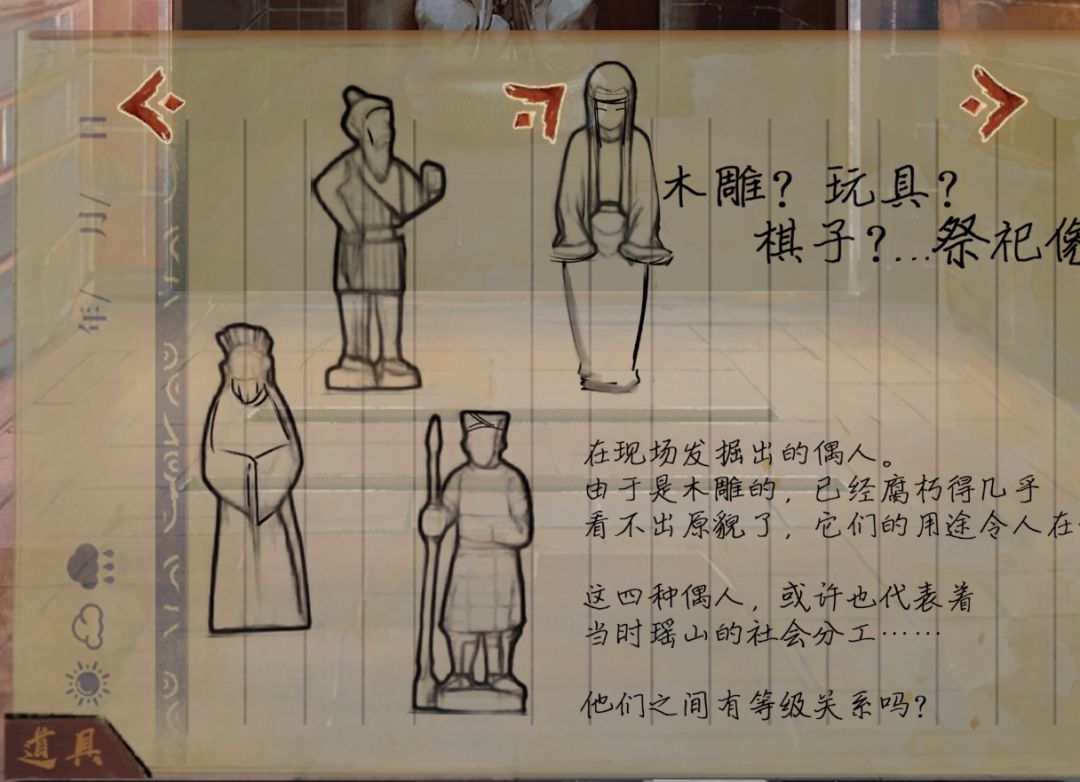 木雕？玩具？
棋子？…祭祀像
在现场发掘出的偶人。
由于是木雕的，已经腐朽得几乎
看不出原貌了，它们的用途令人在
这四种偶人，或许也代表着
当时瑶山的社会分工……
他们之间有等级关系吗？
年/ 月/ 日
道具